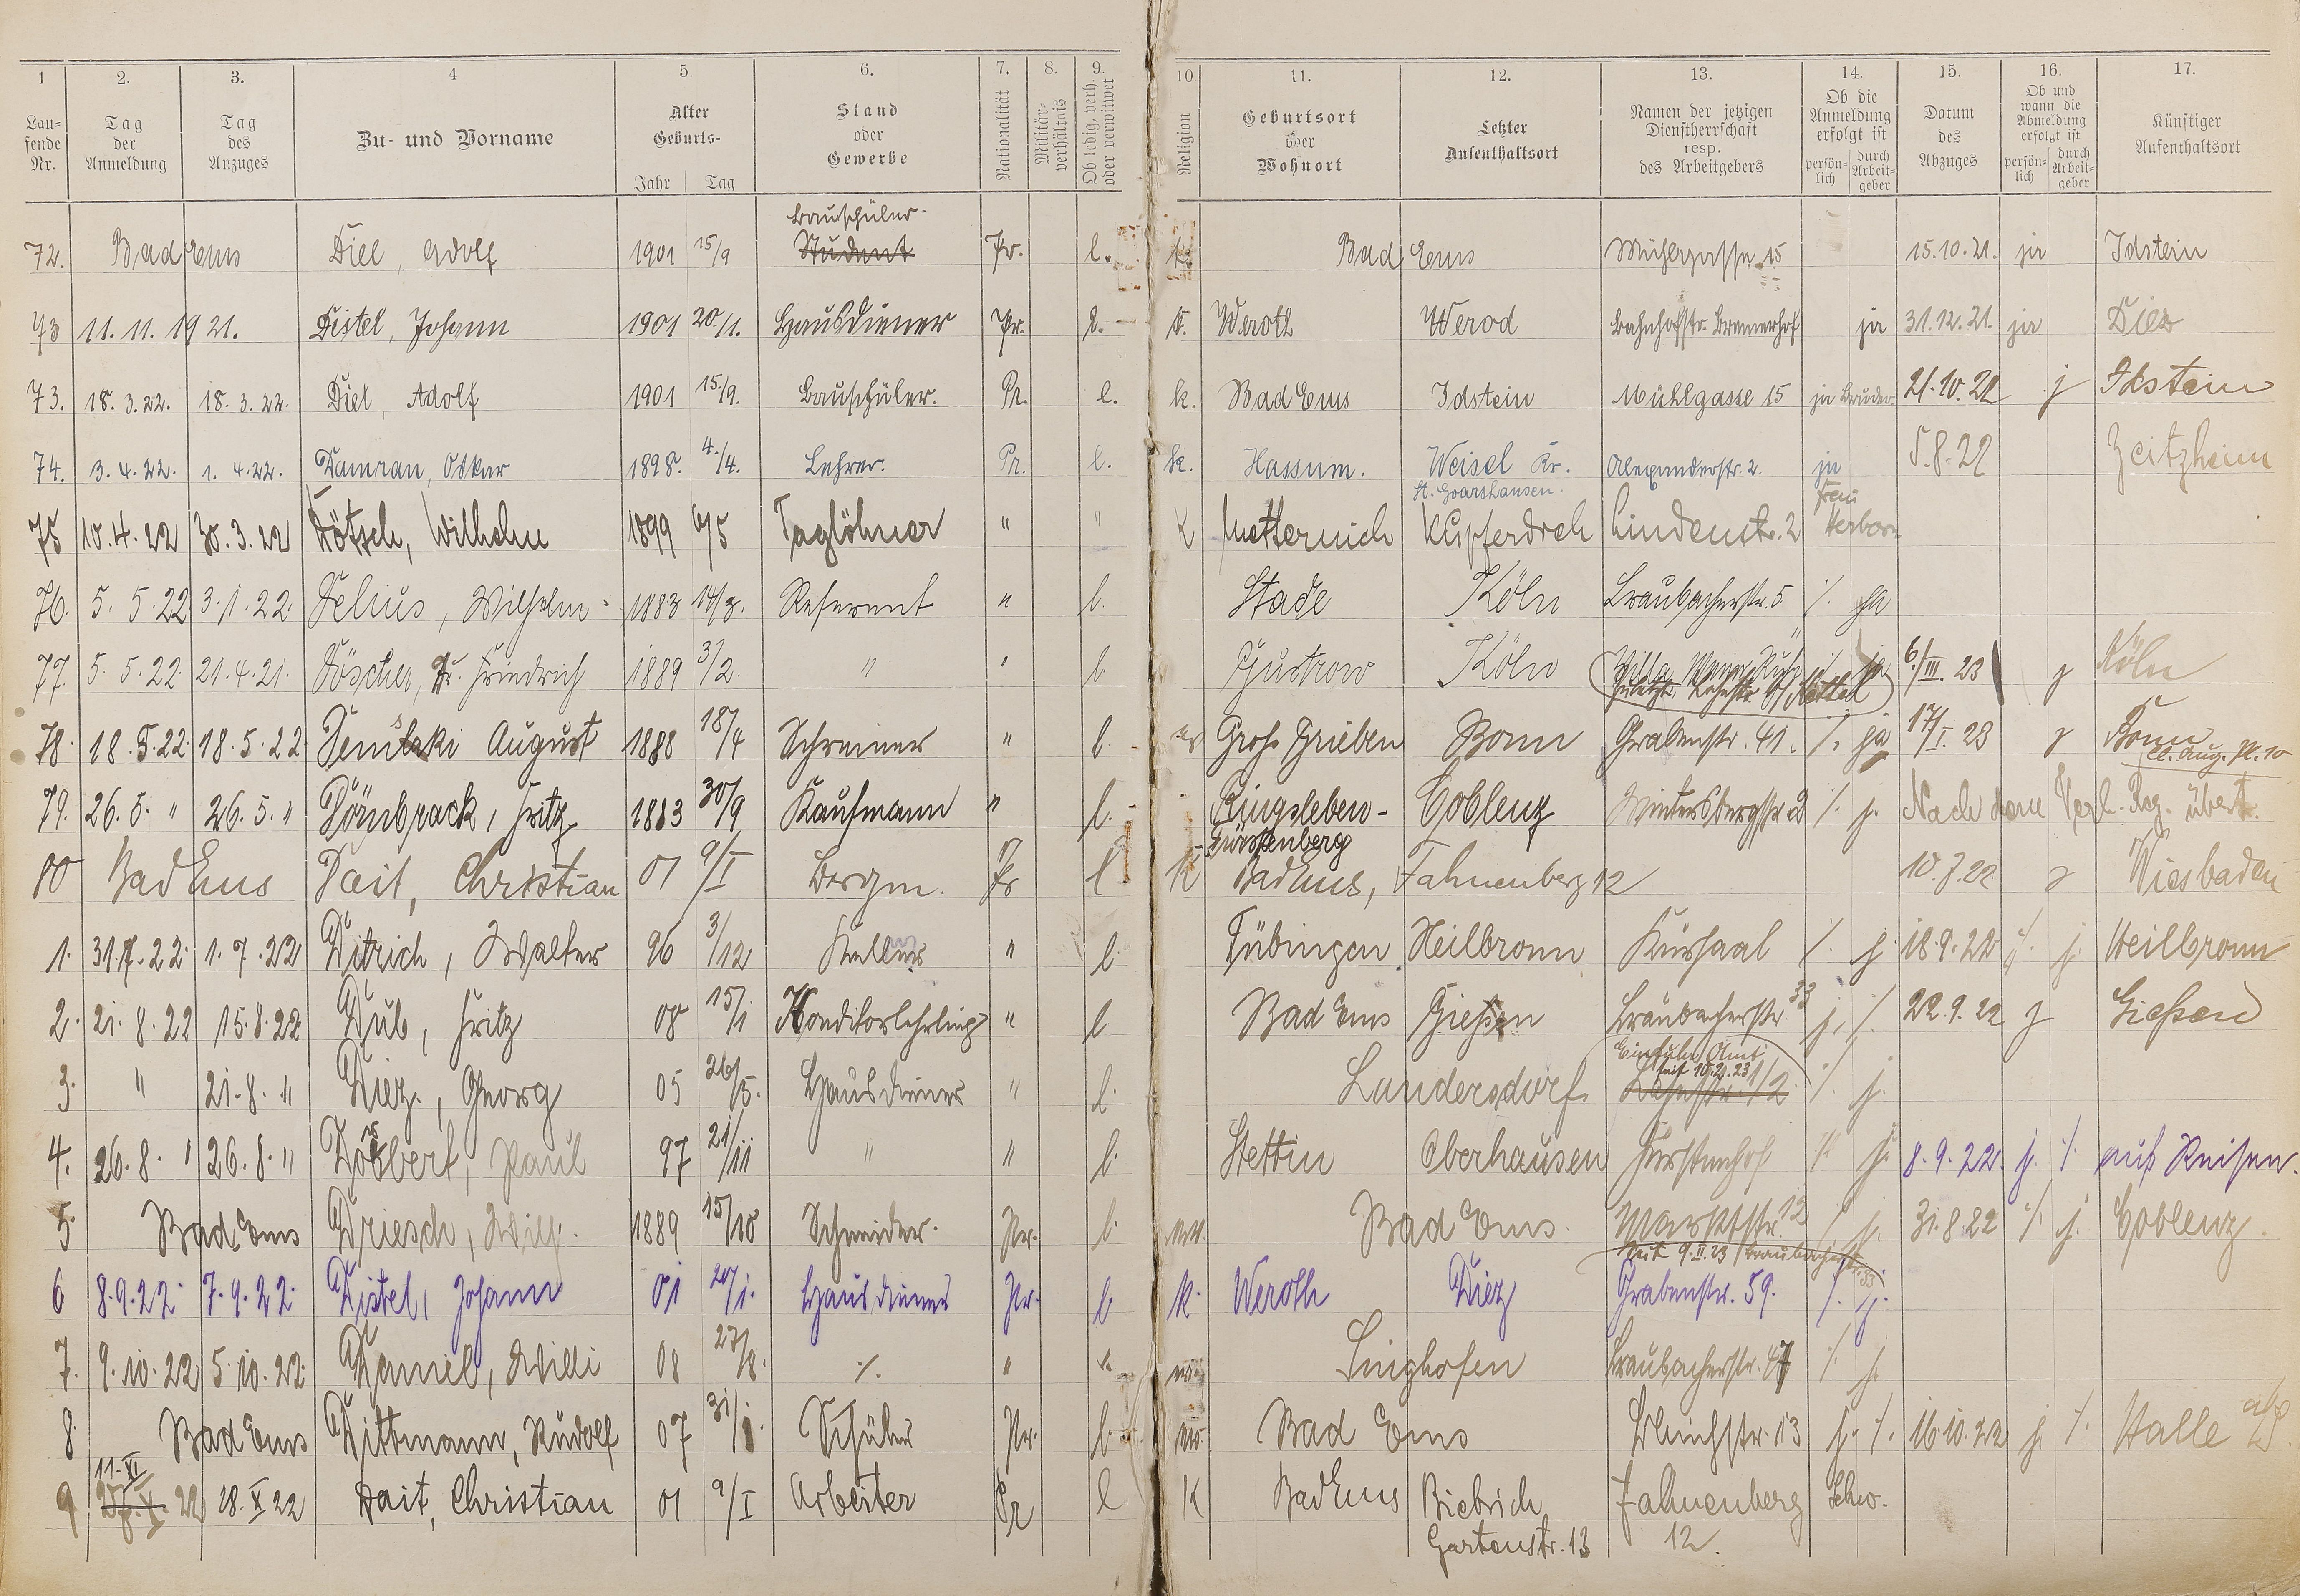 1 2. 3. 4 5. 6. 7. 8. 9. 10 11. 12. 13. 14. 15. 16. 17.
Laufende Nr. Tag der Anmeldung Tag des Anzuges Zu- und Vorname Alter Geburts- Jahr Tag Stand oder Gewerbe Nationalität Militärverhältnis Ob ledig, verh. oder verwitwet Religion Geburtsort oder Wohnort Letzter Aufenthaltsort Namen der jetzigen Dienstherrschaft resp. des Arbeitgebers Ob die Anmeldung erfolgt ist persönlich durch Arbeitgeber Datum des Abzuges Ob und wann die Abmeldung erfolgt ist persönlich durch Arbeitgeber Künftiger Aufenthaltsort
72. Bad Ems Diel, Adolf 1901 15/9 Bauschüler Student Pr. l. k. Bad Ems Mühlgasse 15 15.10.21. ja Idstein
73 11.11.1921. Distel, Johann 1901 20/11. Hausdiener Pr. l. k. Weroth Werod Bahnhofstr. Bremerhof ja 31.12.21. ja Diez
73. 18.3.22. 18.3.22. Diel, Adolf 1901 15./9. Bauschüler. Pr. l. k. Bad Ems Idstein Mühlgasse 15 ja Bruder 21.10.22 j Idstein
74. 3.4.22. 1.4.22. Damrau, Oskar 1898. 4./4. Lehrer. Pr. l. k. Hassum. Weisel Kr. St. Goarshausen. Alexanderstr. 2. ja 5.8.22 Zeitzheim
75 10.4.22 30.3.22 Dötsch, Wilhelm 1899 6/5 Taglöhner " " K Metternich Kupferdreh Lindenstr. 2 Frau Herborn
76. 5.5.22 3.1.22. Delius, Wilhelm 1883 14/3. Referent " l. Stade Köln Braubacherstr. 5 ./. ja
77. 5.5.22. 21.4.21. Döscher, Dr. Friedrich 1889 3/2. " " l Güstrow Köln Villa 6./III. 23 j Köln
78. 18.5.22. 18.5.22. Demski August 1888 18/4 Schreiner " l. ev Groß Grieben Bonn Grabenstr. 41. ./. ja 17/I. 23 j Bonn Cl. Aug. Pl. 10
79. 26.5. " 26.5. " Dörnbrack, Fritz 1883 30/9 Kaufmann " l. Ringsleben- Fürstenberg Coblenz Wintersbergstr 2 ./. j. Nach dem Verl. Reg. übertr.
80 Bad Ems Dait, Christian 01 9/I Bergm. Pr l K Bad Ems, Fahnenberg 12 10.7.22 j Wiesbaden
1. 31.7.22. 1.7.22 Ditrich, Walter 96 3/12 Kellner " l. Tübingen Heilbronn Kursaal ./. j. 18.9.22 ./. j. Heilbronn
2. 21.8.22 15.8.22 Dub, Fritz 08 15/1 Konditorlehrling " l Bad Ems Gießen Braubacherstr 33 j. ./. 22.9.22 j Gießen
3. " 21.8. " Diez, Georg 05 26/5. Hausdiener " l. Landersdorf. Einfuhr Amt seit 10.2.23 1/2 ./. j.
4. 26.8. " 26.8. " Döbbert, Paul 97 21/11 " " l. Stettin Oberhausen Fürstenhof ./. j. 8.9.22. j. ./. auf Reisen.
5. Bad Ems Driesch, Wilh. 1889 15/10 Schneider. Pr. l. ev. Bad Ems. Marktstr. 12 ./. j. 31.8.22 ./. j. Coblenz.
6 8.9.22. 7.9.22. Distel, Johann 01 20/1. Hausdiener Pr. l. k. Weroth Diez seit 9.II.23 Braubacherstr. 33 Grabenstr. 59. ./. j.
7. 9.10.22 5.10.22. Daniel, Willi 08 27/8. ./. " l. ev. Singhofen Braubacherstr. 47 ./. j.
8. Bad Ems Dittmann, Rudolf 07 31/1. Schüler Pr. l. ev. Bad Ems Bleichstr. 13 j. ./. 16.10.22 j ./. Halle a/S.
9 11.XI 22 28.X 22 Dait, Christian 01 9/I Arbeiter Pr l K Bad Ems Biebrich Gartenstr. 13 Fahnenberg 12. Schw.